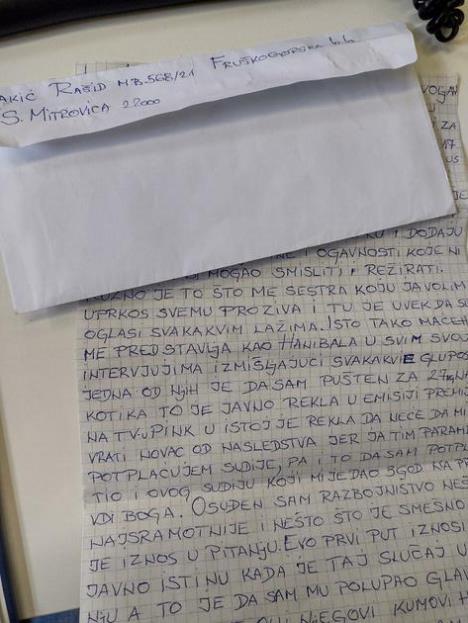 AKIĆ RAŠID MB.568/21 FRUŠKOGORSKA b.b.
S. MITROVICA 22000
VOGA
ZA
17
US
JE
I DODAJU
NE I OGAVNOSTI KOJE NI
MOGAO SMISLITI I REŽIRATI.
RUŽNO JE TO ŠTO ME SESTRA KOJU JA VOLIM
UPRKOS SVEMU PROZIVA I TU JE UVEK DA SE
OGLASI SVAKAKVIM LAŽIMA. ISTO TAKO MAĆEHA
ME PREDSTAVLJA KAO HANIBALA U SVIM SVOJ
INTERVJUJIMA IZMIŠLJAJUĆI SVAKAKVE GLUPOS
JEDNA OD NJIH JE DA SAM PUŠTEN ZA 27g NAR
KOTIKA TO JE JAVNO REKLA U EMISIJI PREMIJ
NA TV-u PINK U ISTOJ JE REKLA DA NEĆE DA MI
VRATI NOVAC OD NASLEDSTVA JER JA TIM PARAMA
POTPLAĆUJEM SUDIJE, PA I TO DA SAM POTPLA
TIO I OVOG SUDIJU KOJI MI JE DAO 3GOD NA PR
VDI BOGA. OSUĐEN SAM RAZBOJNIŠTVO NEŠ
NAJSRAMOTNIJE I NEŠTO ŠTO JE SMEŠNO
JE IZNOS U PITANJU. EVO PRVI PUT IZNOSI
JAVNO ISTINU KADA JE TAJ SLUČAJ U
NJU A TO JE DA SAM MU POLUPAO GLAV
NJEGOVI KUMOVI H